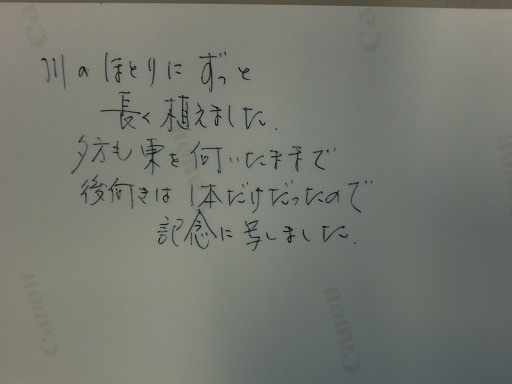 川のほとりにずっと
長く植えました.
夕方も東を向いたままで
後向きは1本だけだったので
記念に写しました.
Canon
Canon
Canon
Canon